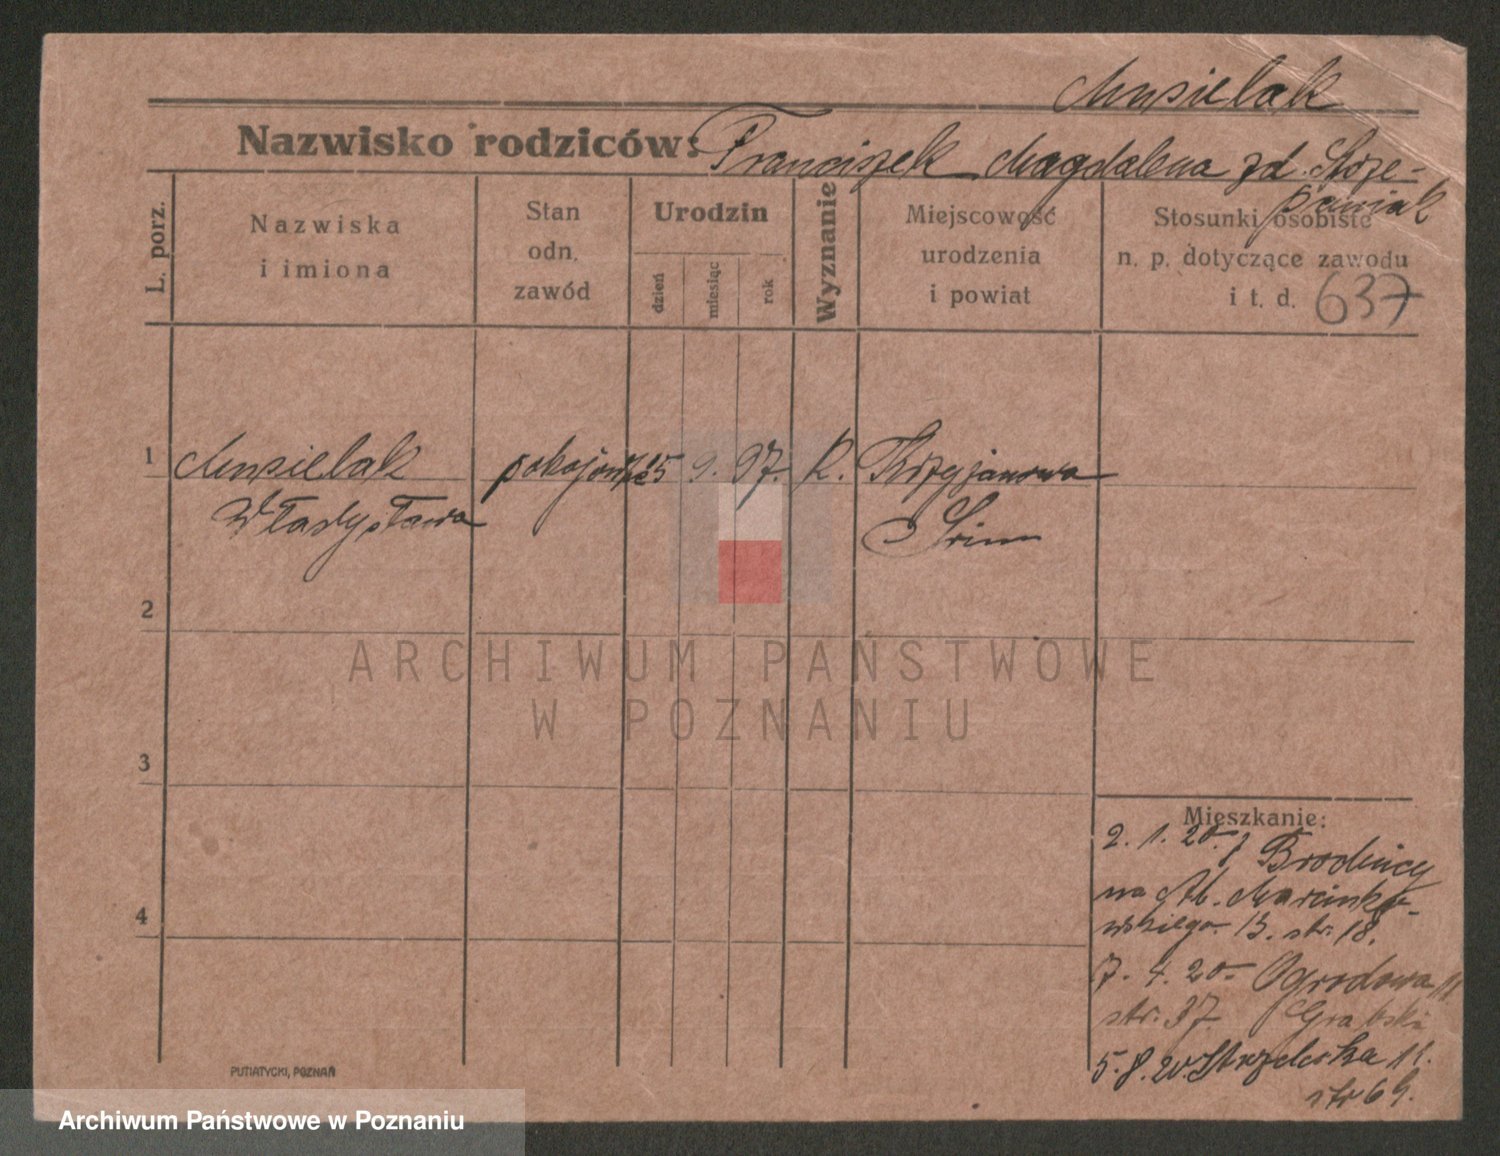 Musielak
Nazwisko rodziców: Franciszek Magdalena zd. Szcze-
paniak
L. porz.
Nazwiska
i imiona
Stan
odn.
zawód
Urodzin
dzień
miesiąc
rok
Wyznanie
Miejscowość
urodzenia
i powiat
Stosunki osobiste
n. p. dotyczące zawodu
i t. d. 637
1 Musielak pokojówka 15 9. 97. K. Krzyżanowa
Władysława Śrim
2
3
4
Mieszkanie:
2. 1. 20. z Brodnicy
na Al. Marcinko-
wskiego 13. str. 18.
7. 4. 20. Ogrodowa 11
str. 37. Grabski
5. 8. 20. Strzelecka 11.
str 69.
PUTIATYCKI, POZNAŃ
ARCHIWUM PAŃSTWOWE
W POZNANIU
Archiwum Państwowe w Poznaniu